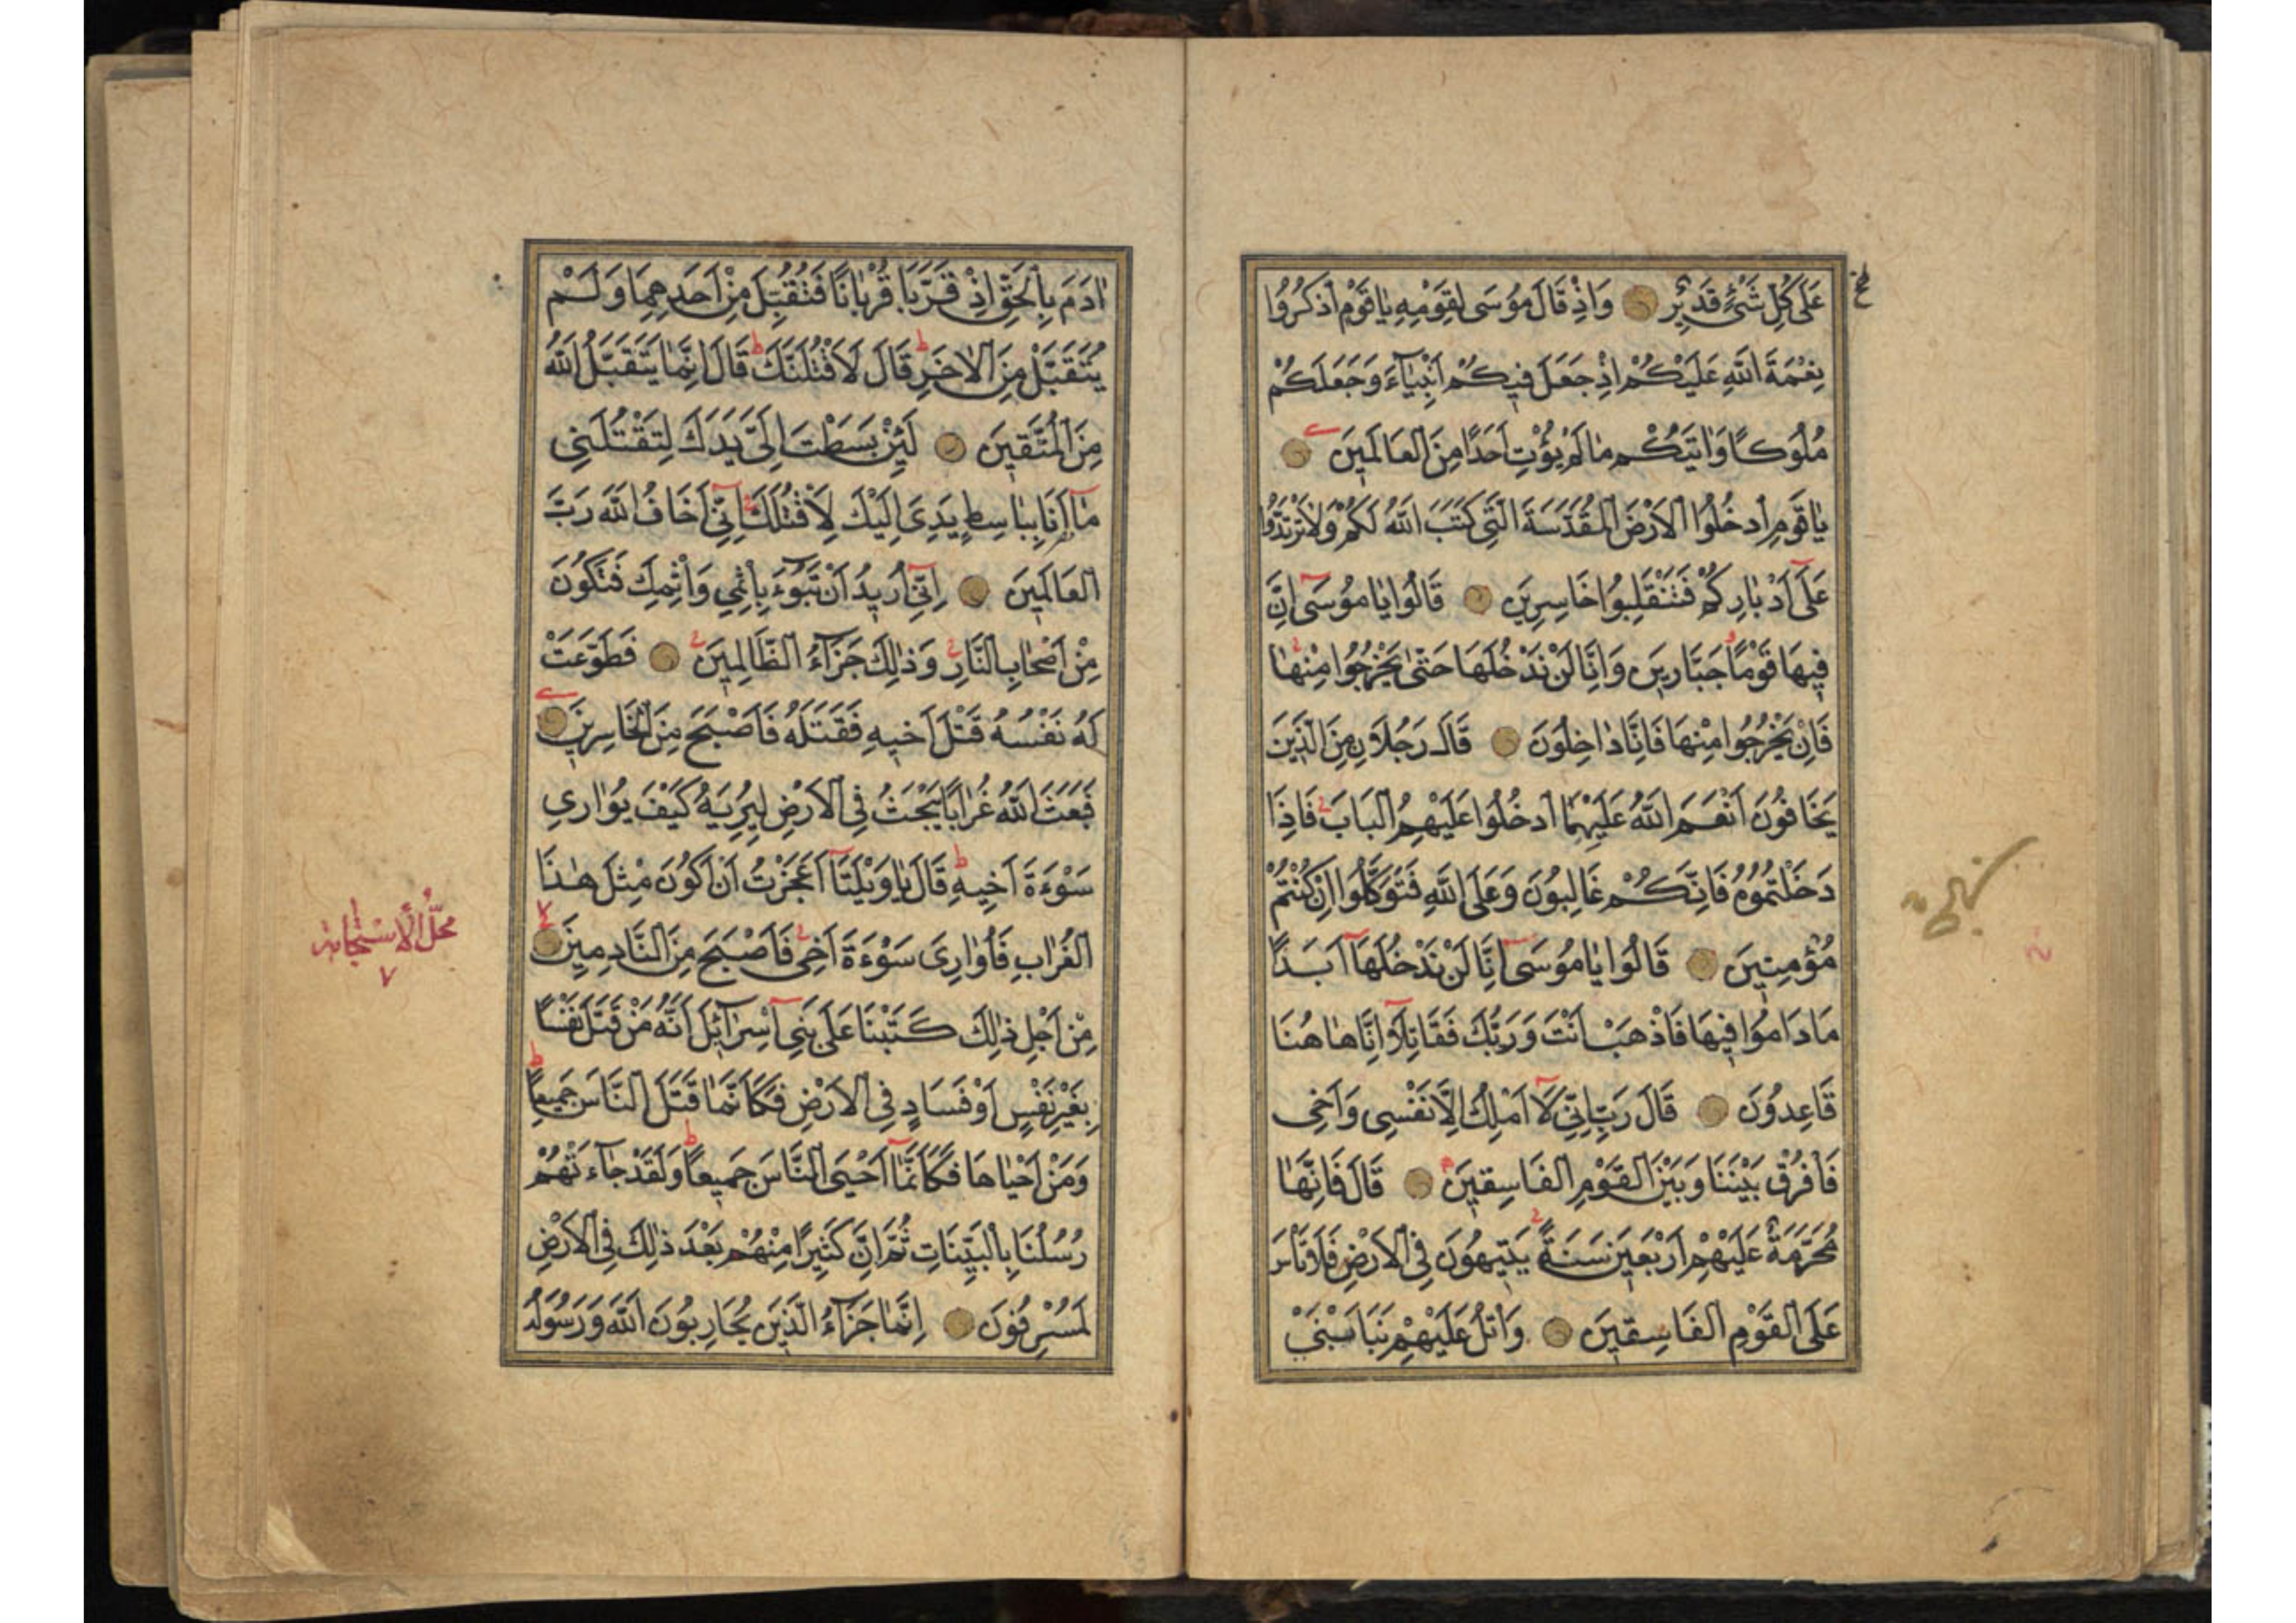 عَلٰى كُلِّ شَيْءٍ قَدِيرٌ وَاِذْ قَالَ مُوسٰى لِقَوْمِهِ يَاقَوْمِ اذْكُرُوا
نِعْمَةَ اللّٰهِ عَلَيْكُمْ اِذْ جَعَلَ فِيكُمْ اَنْبِيَآءَ وَجَعَلَكُمْ
مُلُوكًا وَاٰتٰيكُمْ مَا لَمْ يُؤْتِ اَحَدًا مِنَ الْعَالَمِينَ
يَاقَوْمِ ادْخُلُوا الْاَرْضَ الْمُقَدَّسَةَ الَّتِي كَتَبَ اللّٰهُ لَكُمْ وَلَا تَرْتَدُّوا
عَلٰٓى اَدْبَارِكُمْ فَتَنْقَلِبُوا خَاسِرِينَ قَالُوا يَا مُوسٰٓى اِنَّ
فِيهَا قَوْمًا جَبَّارِينَ وَاِنَّا لَنْ نَدْخُلَهَا حَتّٰى يَخْرُجُوا مِنْهَا
فَاِنْ يَخْرُجُوا مِنْهَا فَاِنَّا دَاخِلُونَ قَالَ رَجُلَانِ مِنَ الَّذِينَ
يَخَافُونَ اَنْعَمَ اللّٰهُ عَلَيْهِمَا ادْخُلُوا عَلَيْهِمُ الْبَابَ فَاِذَا
دَخَلْتُمُوهُ فَاِنَّكُمْ غَالِبُونَ وَعَلَى اللّٰهِ فَتَوَكَّلُوا اِنْ كُنْتُمْ
مُؤْمِنِينَ قَالُوا يَا مُوسٰٓى اِنَّا لَنْ نَدْخُلَهَآ اَبَدًا
مَا دَامُوا فِيهَا فَاذْهَبْ اَنْتَ وَرَبُّكَ فَقَاتِلَآ اِنَّا هَاهُنَا
قَاعِدُونَ قَالَ رَبِّ اِنِّي لَآ اَمْلِكُ اِلَّا نَفْسِي وَاَخِي
فَافْرُقْ بَيْنَنَا وَبَيْنَ الْقَوْمِ الْفَاسِقِينَ قَالَ فَاِنَّهَا
مُحَرَّمَةٌ عَلَيْهِمْ اَرْبَعِينَ سَنَةً يَتِيهُونَ فِي الْاَرْضِ فَلَا تَاْسَ
عَلَى الْقَوْمِ الْفَاسِقِينَ وَاتْلُ عَلَيْهِمْ نَبَاَ ابْنَيْ
اٰدَمَ بِالْحَقِّ اِذْ قَرَّبَا قُرْبَانًا فَتُقُبِّلَ مِنْ اَحَدِهِمَا وَلَمْ
يُتَقَبَّلْ مِنَ الْاٰخَرِ قَالَ لَاَقْتُلَنَّكَ قَالَ اِنَّمَا يَتَقَبَّلُ اللّٰهُ
مِنَ الْمُتَّقِينَ لَئِنْ بَسَطْتَ اِلَيَّ يَدَكَ لِتَقْتُلَنِي
مَآ اَنَا بِبَاسِطٍ يَدِيَ اِلَيْكَ لِاَقْتُلَكَ اِنِّٓي اَخَافُ اللّٰهَ رَبَّ
الْعَالَمِينَ اِنِّٓي اُرِيدُ اَنْ تَبُوٓءَ بِاِثْمِي وَاِثْمِكَ فَتَكُونَ
مِنْ اَصْحَابِ النَّارِ وَذٰلِكَ جَزَآءُ الظَّالِمِينَ فَطَوَّعَتْ
لَهُ نَفْسُهُ قَتْلَ اَخِيهِ فَقَتَلَهُ فَاَصْبَحَ مِنَ الْخَاسِرِينَ
فَبَعَثَ اللّٰهُ غُرَابًا يَبْحَثُ فِي الْاَرْضِ لِيُرِيَهُ كَيْفَ يُوَارِي
سَوْءَةَ اَخِيهِ قَالَ يَا وَيْلَتَآ اَعَجَزْتُ اَنْ اَكُونَ مِثْلَ هٰذَا
الْغُرَابِ فَاُوَارِيَ سَوْءَةَ اَخِي فَاَصْبَحَ مِنَ النَّادِمِينَ
مِنْ اَجْلِ ذٰلِكَ كَتَبْنَا عَلٰى بَنِٓي اِسْرَآئِيلَ اَنَّهُ مَنْ قَتَلَ نَفْسًا
بِغَيْرِ نَفْسٍ اَوْ فَسَادٍ فِي الْاَرْضِ فَكَاَنَّمَا قَتَلَ النَّاسَ جَمِيعًا
وَمَنْ اَحْيَاهَا فَكَاَنَّمَآ اَحْيَى النَّاسَ جَمِيعًا وَلَقَدْ جَآءَتْهُمْ
رُسُلُنَا بِالْبَيِّنَاتِ ثُمَّ اِنَّ كَثِيرًا مِنْهُمْ بَعْدَ ذٰلِكَ فِي الْاَرْضِ
لَمُسْرِفُونَ اِنَّمَا جَزَآءُ الَّذِينَ يُحَارِبُونَ اللّٰهَ وَرَسُولَهُ